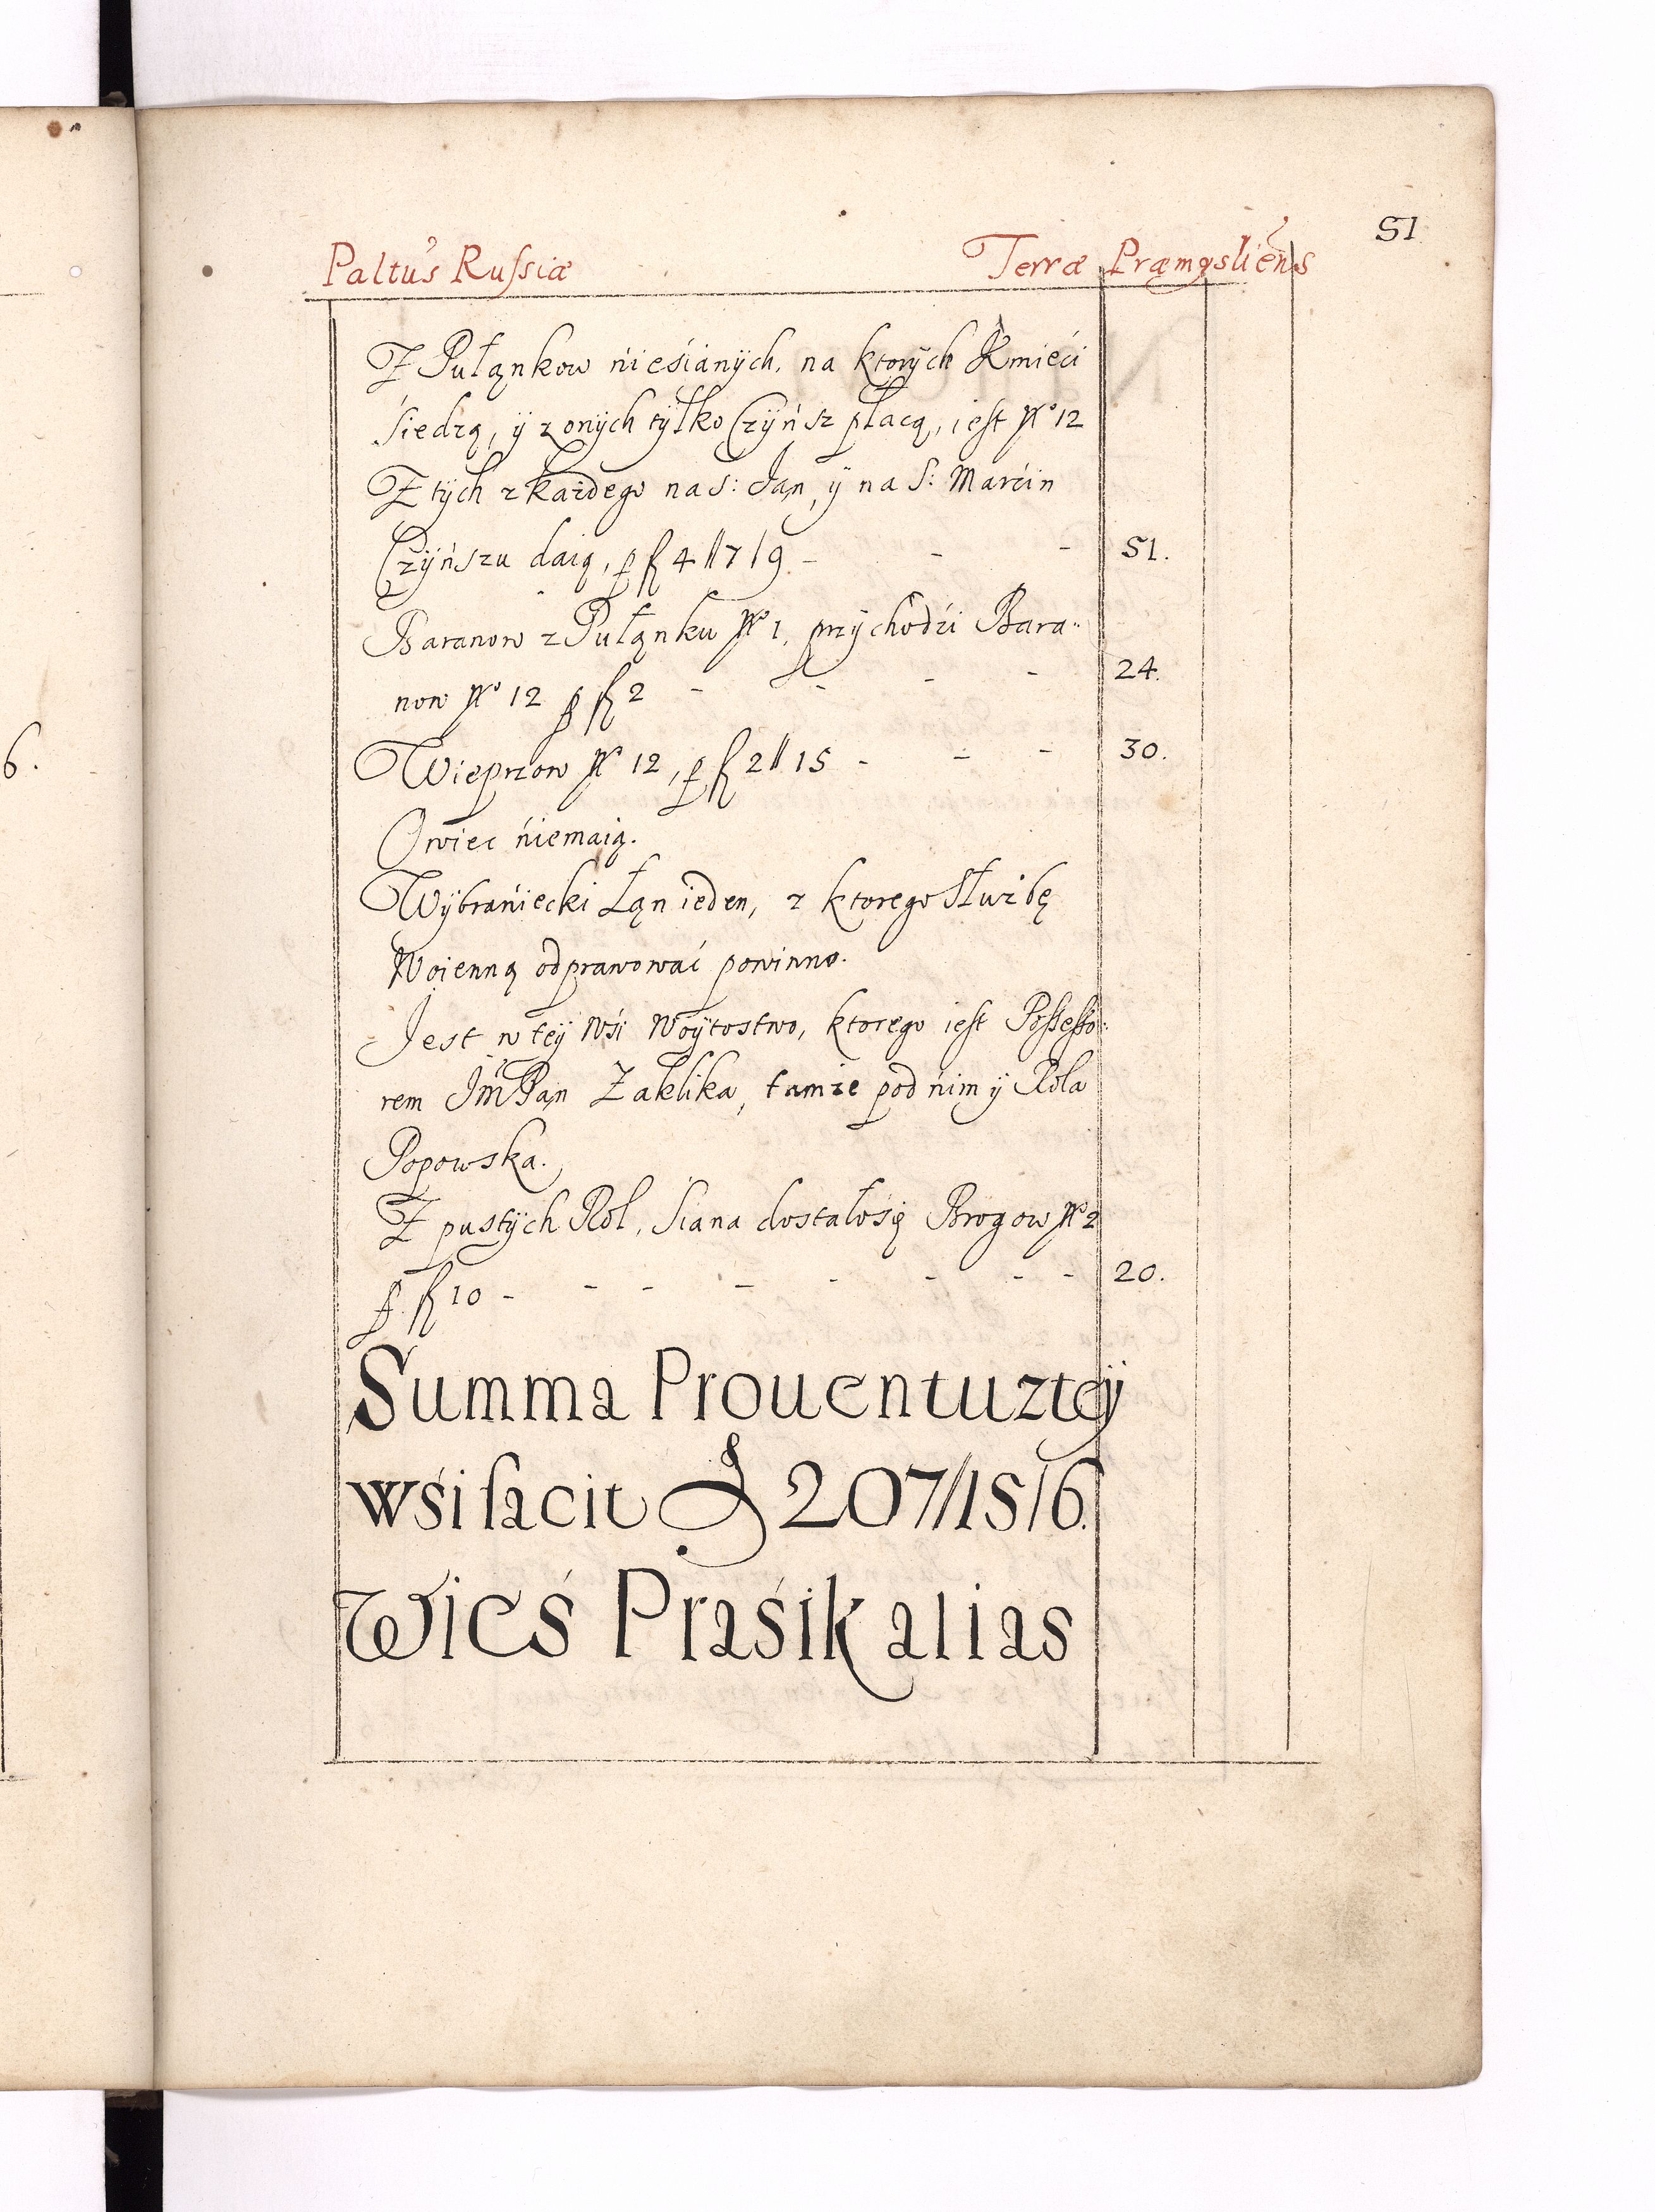 51
Paltus Russiæ Terræ Præmysliens
Z Pułąnkow nieśianÿch, na ktorÿch Kmieći
Śiedzą, ÿ z onÿch tÿlko Czÿńsz płacą, iest No 12
Z tÿch z każdego na S: Jąn, ÿ na S: Marćin
Czÿńszu daią, p fl 4//7/9 - - - 51.
Baranow z Pułąnku No 1, przÿchodźi Bara-
now No 12 p fl 2 - - - - 24.
Wieprzow No 12, p fl 2//15 - - - 30.
Owiec niemaią.
Wÿbrańiecki Łąn ieden, z ktorego Służbę
Woienną odprawować powinno.
Jest w teÿ Wśi Woÿtostwo, ktorego iest Possesso-
rem Jm Pąn Zaklika, tamże pod nim ÿ Rola
Popowska.
Z pustÿch Rol, Siana dostałośię Brogow No 2
p fl 10 - - - - - - - - 20.
Summa Prouentu z teÿ
wśi facit fl 207//15/6.
Wieś Praśik alias
6.